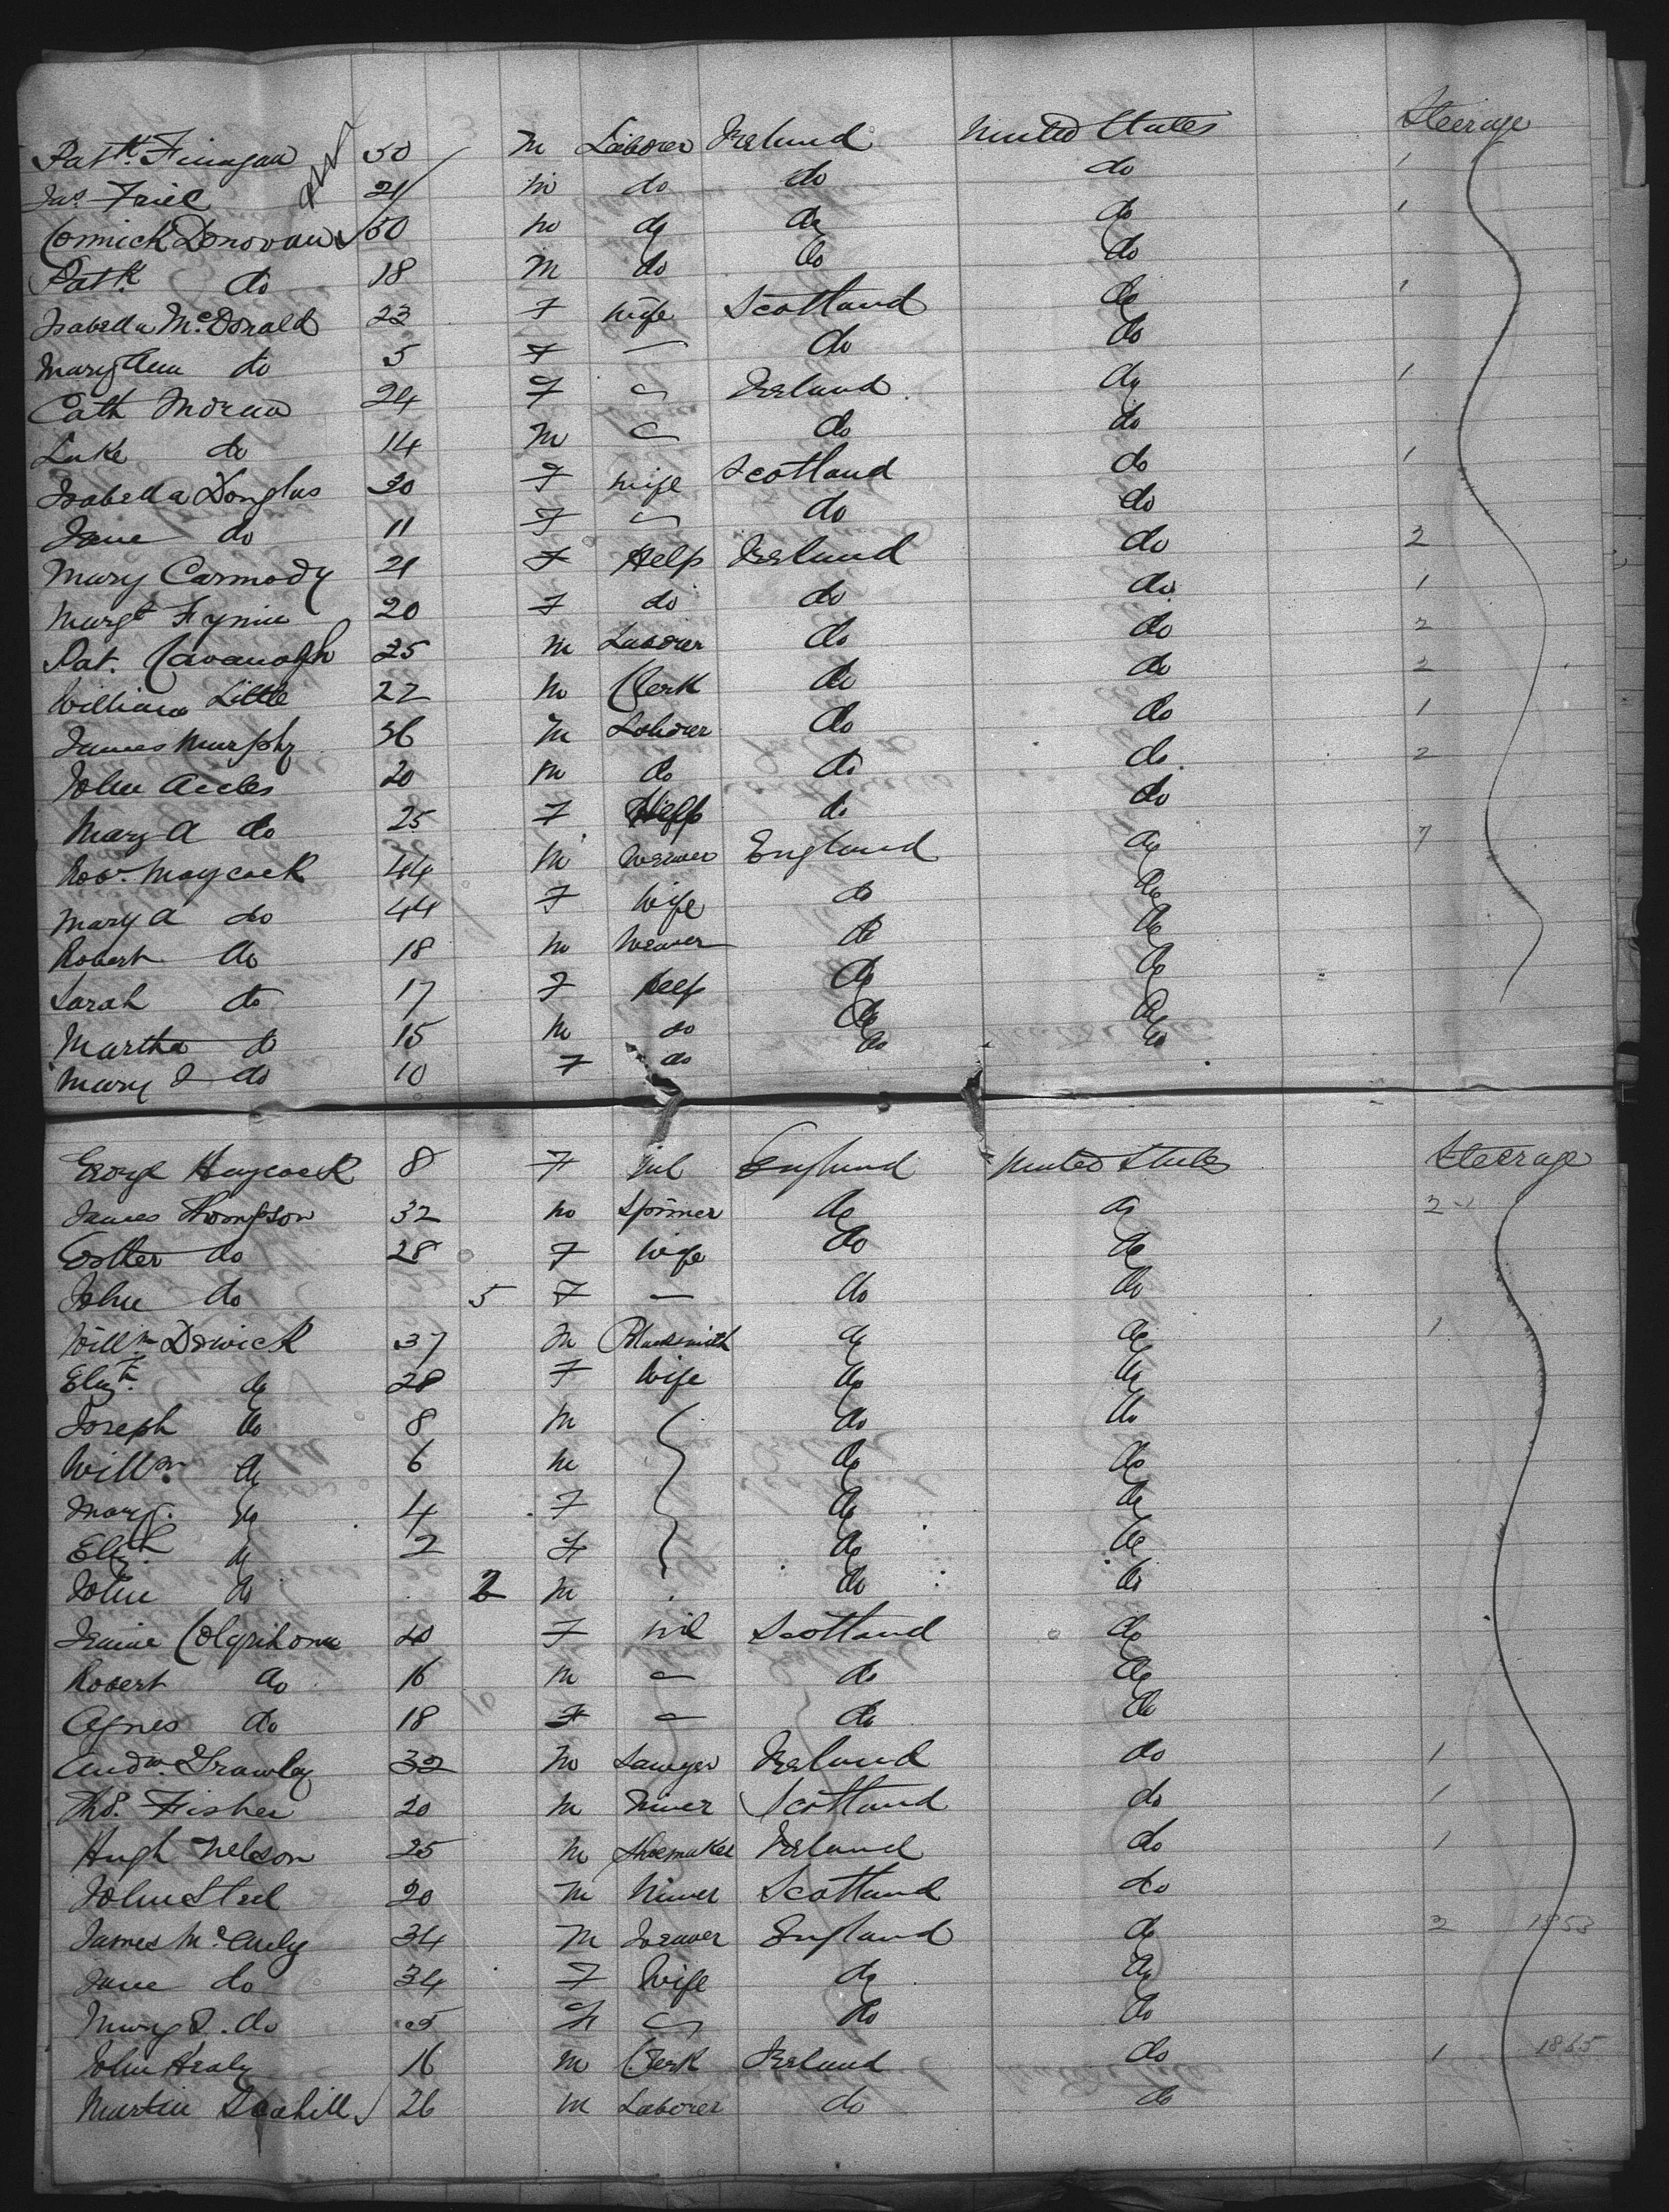 Patk. Finagan 50 M Laborer Ireland United States Steerage
Jas. Friel 21 M do do do 1
Cormick Donovan 50 M do do do 1
Patk. do 18 M do do do
Isabella McDonald 23 F Wife Scotland do 1
Mary Ann do 5 F — do do
Cath Moran 24 F " Ireland do 1
Luke do 14 M " do do
Isabella Douglas 30 F Wife Scotland do 1
Jane do 11 F " do do
Mary Carmody 21 F Help Ireland do 2
Margt 20 F do do do 1
Pat. Cavanagh 25 M Laborer do do 2
William Little 22 M Clerk do do 2
James Murphy 36 M Laborer do do 1
John Accles 20 M do do do 2
Mary A do 25 F Help do do
Robt. Maycock 44 M Weaver England do 7
Mary A do 44 F Wife do do
Robert do 18 M Weaver do do
Sarah do 17 F Help do do
Martha do 15 M do do do
Mary J do 10 F do do do
George Haycock 8 F England United States Steerage
James Thompson 32 M Spinner do do 2
Esther do 28 F Wife do do
John do 5 F — do do
Willm Dewick 37 M Blacksmith do do 1
Elizth. do 28 F Wife do do
Joseph do 8 M do do
Willm. do 6 M do do
Mary. do 4 F do do
Elizth. do 2 F do do
John do 2 M do do
F Scotland do
Robert do 16 M " do do
Agnes do 18 F " do do
Andw. 32 M Sawyer Ireland do 1
Ths. Fisher 20 M Miner Scotland do 1
Hugh Nelson 25 M Shoemaker Ireland do 1
John Steel 20 M Miner Scotland do
James 34 M Weaver England do 2 1853
Jane do 34 F Wife do do
Mary J. do 5 F " do do
John Healy 16 M Clerk Ireland do 1 1865
Martin Scahill 26 M Laborer do do